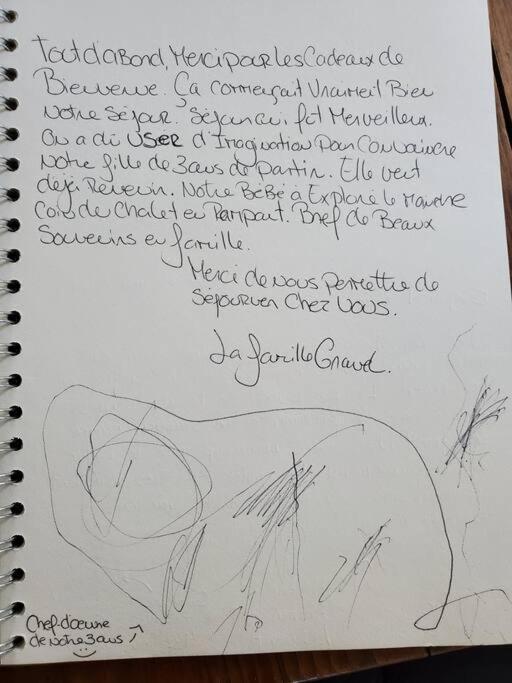 Tout d'abord, Merci pour les Cadeaux de
Bienvenue. Ça commençait Vraiment Bien
Notre Séjour. Séjour qui fut Merveilleux.
On a dû USER d'Imagination Pour Convaincre
Notre fille de 3ans de partir. Elle veut
déjà Revenir. Notre Bébé à Exploré le Moindre
Coin du Chalet en Rampant. Bref de Beaux
Souvenirs en famille.
Merci de nous Permettre de
Séjourner Chez Vous.
La famille Gravel.
Chef-d'œuvre
de Notre 3ans